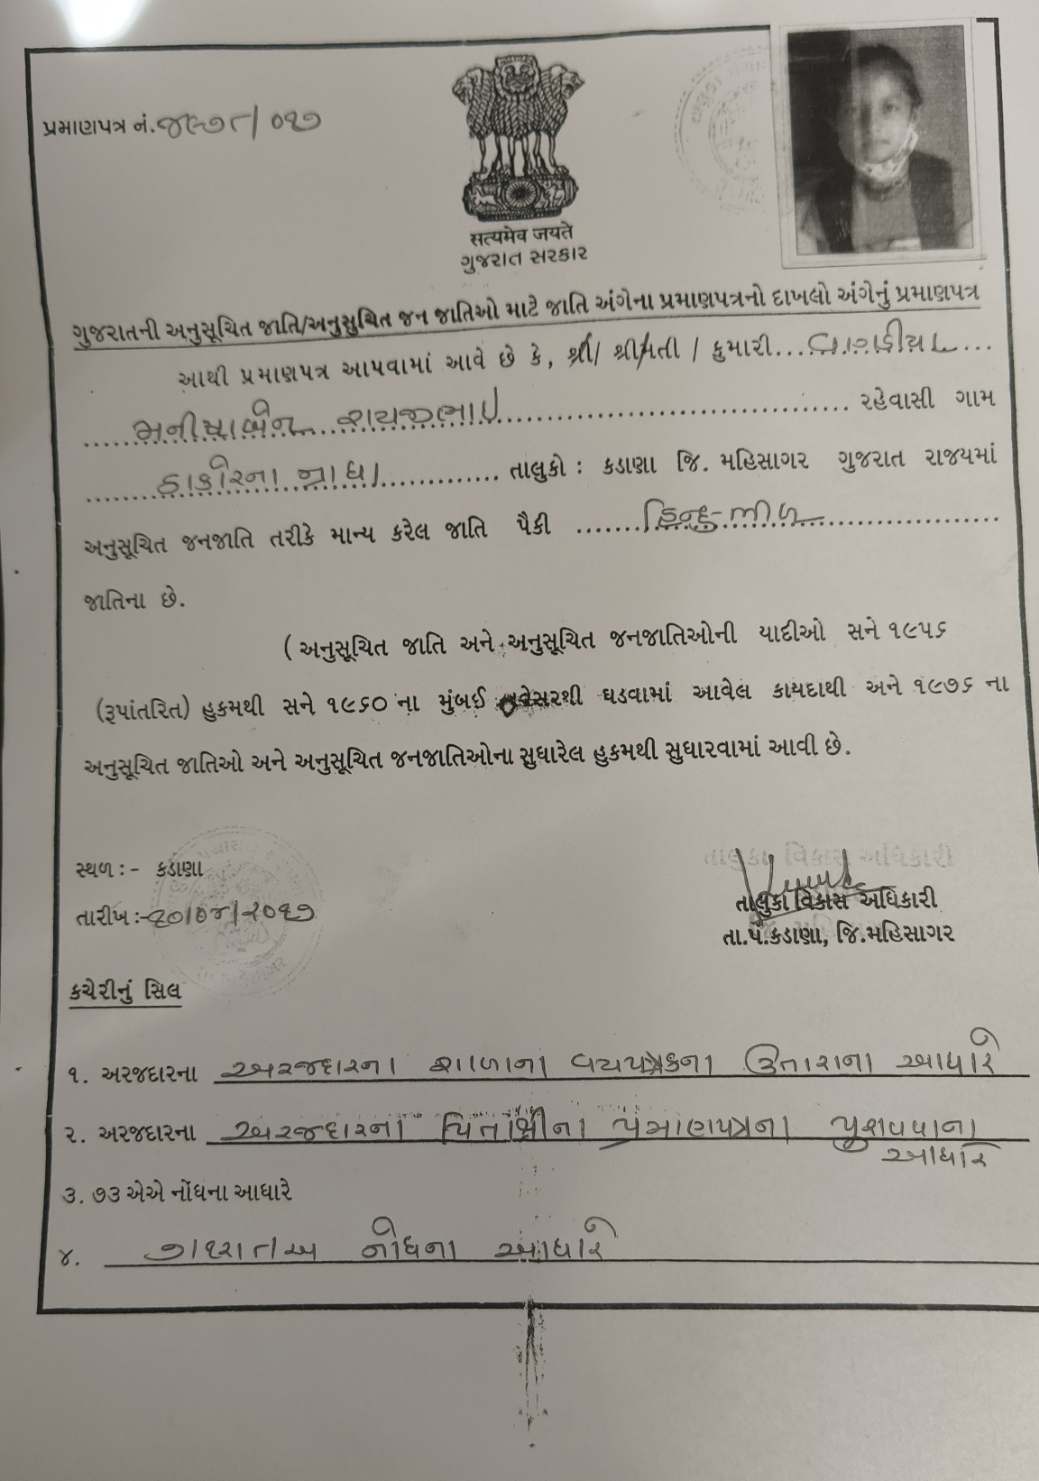 પ્રમાણપત્ર નં. જલ્ત/ ૦૧૭
सत्यमेव जयते
ગુજરાત સરકાર
ગુજરાતની અનુસૂચિત જાતિ/અનુસુચિત જન જાતિઓ માટે જાતિ અંગેના પ્રમાણપત્રનો દાખલો અંગેનું પ્રમાણપત્ર
આથી પ્રમાણપત્ર આપવામાં આવે છે કે, શ્રી/ શ્રીમતી / કુમારી...
મનીષાબેન રાયજીભાઇ રહેવાસી ગામ
ડાકોરના નાધા તાલુકો : કડાણા જિ. મહિસાગર ગુજરાત રાજયમાં
અનુસૂચિત જનજાતિ તરીકે માન્ય કરેલ જાતિ પૈકી હિન્દુ-ભીલ
જાતિના છે.
(અનુસૂચિત જાતિ અને અનુસૂચિત જનજાતિઓની યાદીઓ સને ૧૯૫૬
(રૂપાંતરિત) હુકમથી સને ૧૯૬૦ ના મુંબઈ નવેસરથી ઘડવામાં આવેલ કાયદાથી અને ૧૯૭૬ ના
અનુસૂચિત જાતિઓ અને અનુસૂચિત જનજાતિઓના સુધારેલ હુકમથી સુધારવામાં આવી છે.
સ્થળ :- કડાણા
તાલુકા વિકાસ અધિકારી
તારીખ :- ૨૦/૦૪/૨૦૧૭
તા.પં.કડાણા, જિ.મહિસાગર
કચેરીનું સિલ
૧. અરજદારના અરજદારના શાળાના વયપત્રકના ઉતારાના આધારે
૨. અરજદારના અરજદારના પિતાશ્રીના પ્રમાણપત્રના પુરાવવાના
આધારે
૩. ૭૩ એએ નોંધના આધારે
૪. નોધના આધારે